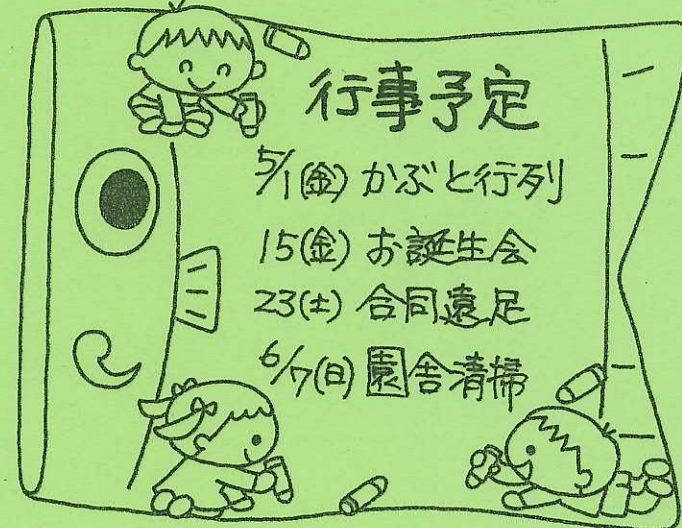 行事予定
5/1(金) かぶと行列
15(金) お誕生会
23(土) 合同遠足
6/7(日) 園舎清掃